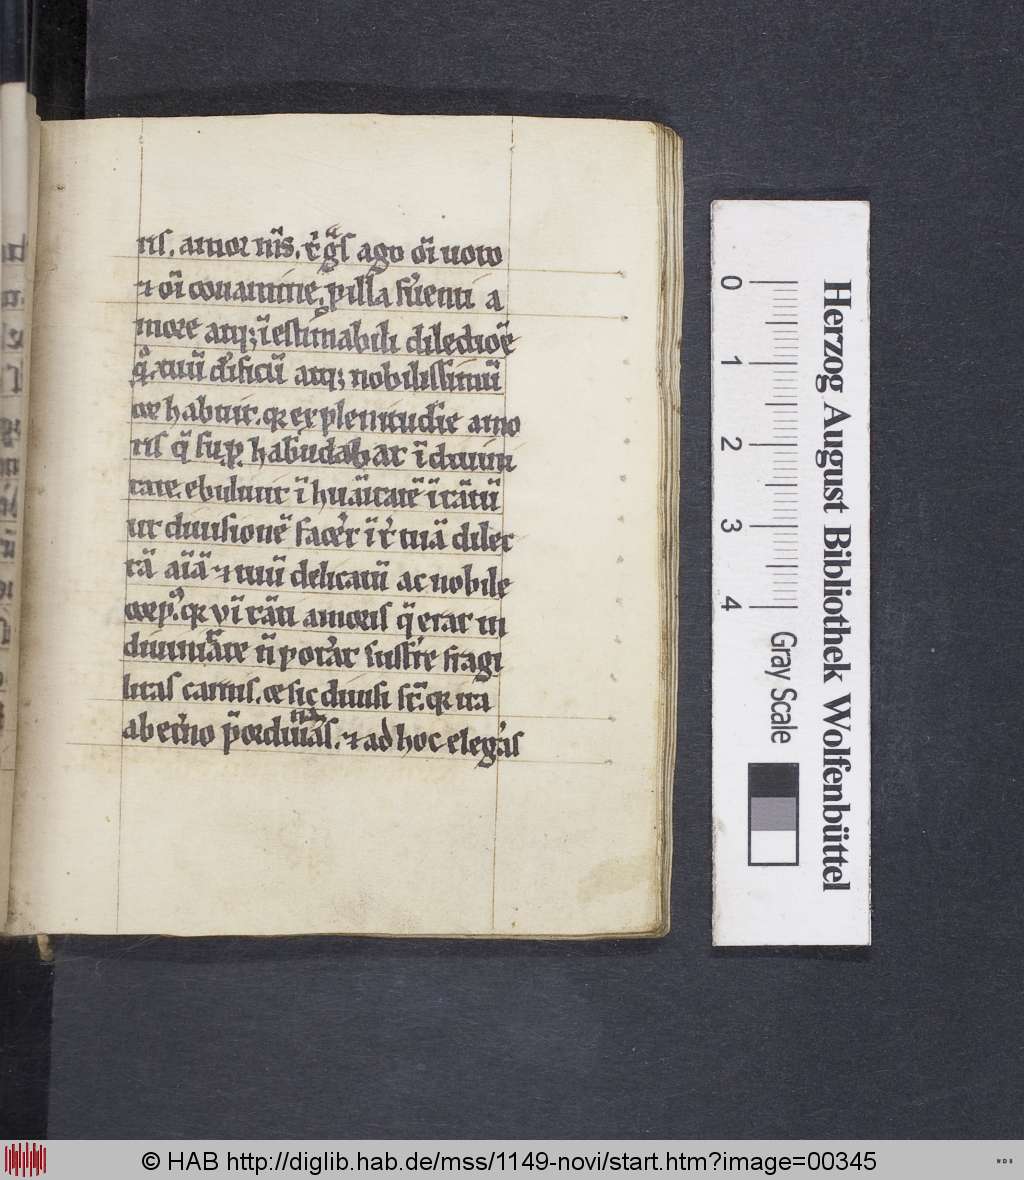 ris. amor nr̄is. t̾ gr̄as ago oī uoto
⁊ oī conamine, ꝓ illa fẜuenti a
more atqꝫ īestimabili dilectiōe
q̄ tuū deificū atqꝫ nobilissimū
cor habuit. qꝛ ex plenitudīe amo
ris q̄ suꝑ habūdabat ī diuini
tate. ebuliuit ī hūanitatē ī tātū
ut diuisionē facēt īt̾ tuā dilec
tā aīā ⁊ tuū delicatū ac nobile
corpꝰ. qꝛ vī tāti amoris q̄ erat in
diuinitate nō potat suffr̄e fragi
litas carnis. ⁊ sic diuisi sūt. qꝛ ita
ab et̾no p̄ordinās. ⁊ ad hoc elegas
Herzog August Bibliothek Wolfenbüttel
0 1 2 3 4
Gray Scale
© HAB http://diglib.hab.de/mss/1149-novi/start.htm?image=00345